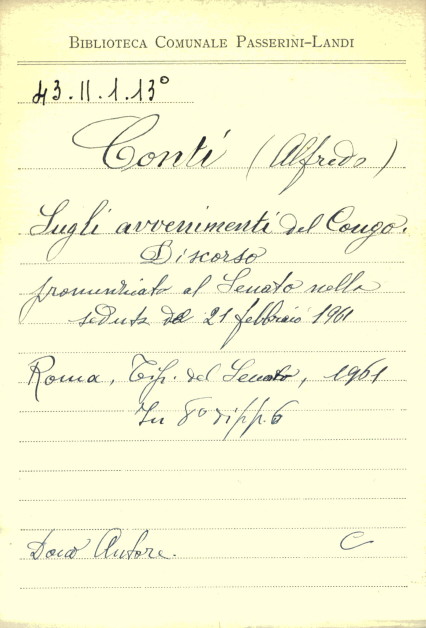 BIBLIOTECA COMUNALE PASSERINI-LANDI
43.II.1.13°
Conti (Alfredo)
Sugli avvenimenti del Congo.
Discorso
pronunziato al Senato nella
seduta del 21 febbraio 1961
Roma, Tip. del Senato, 1961
In 8° di pp. 6
Dono Autore. C